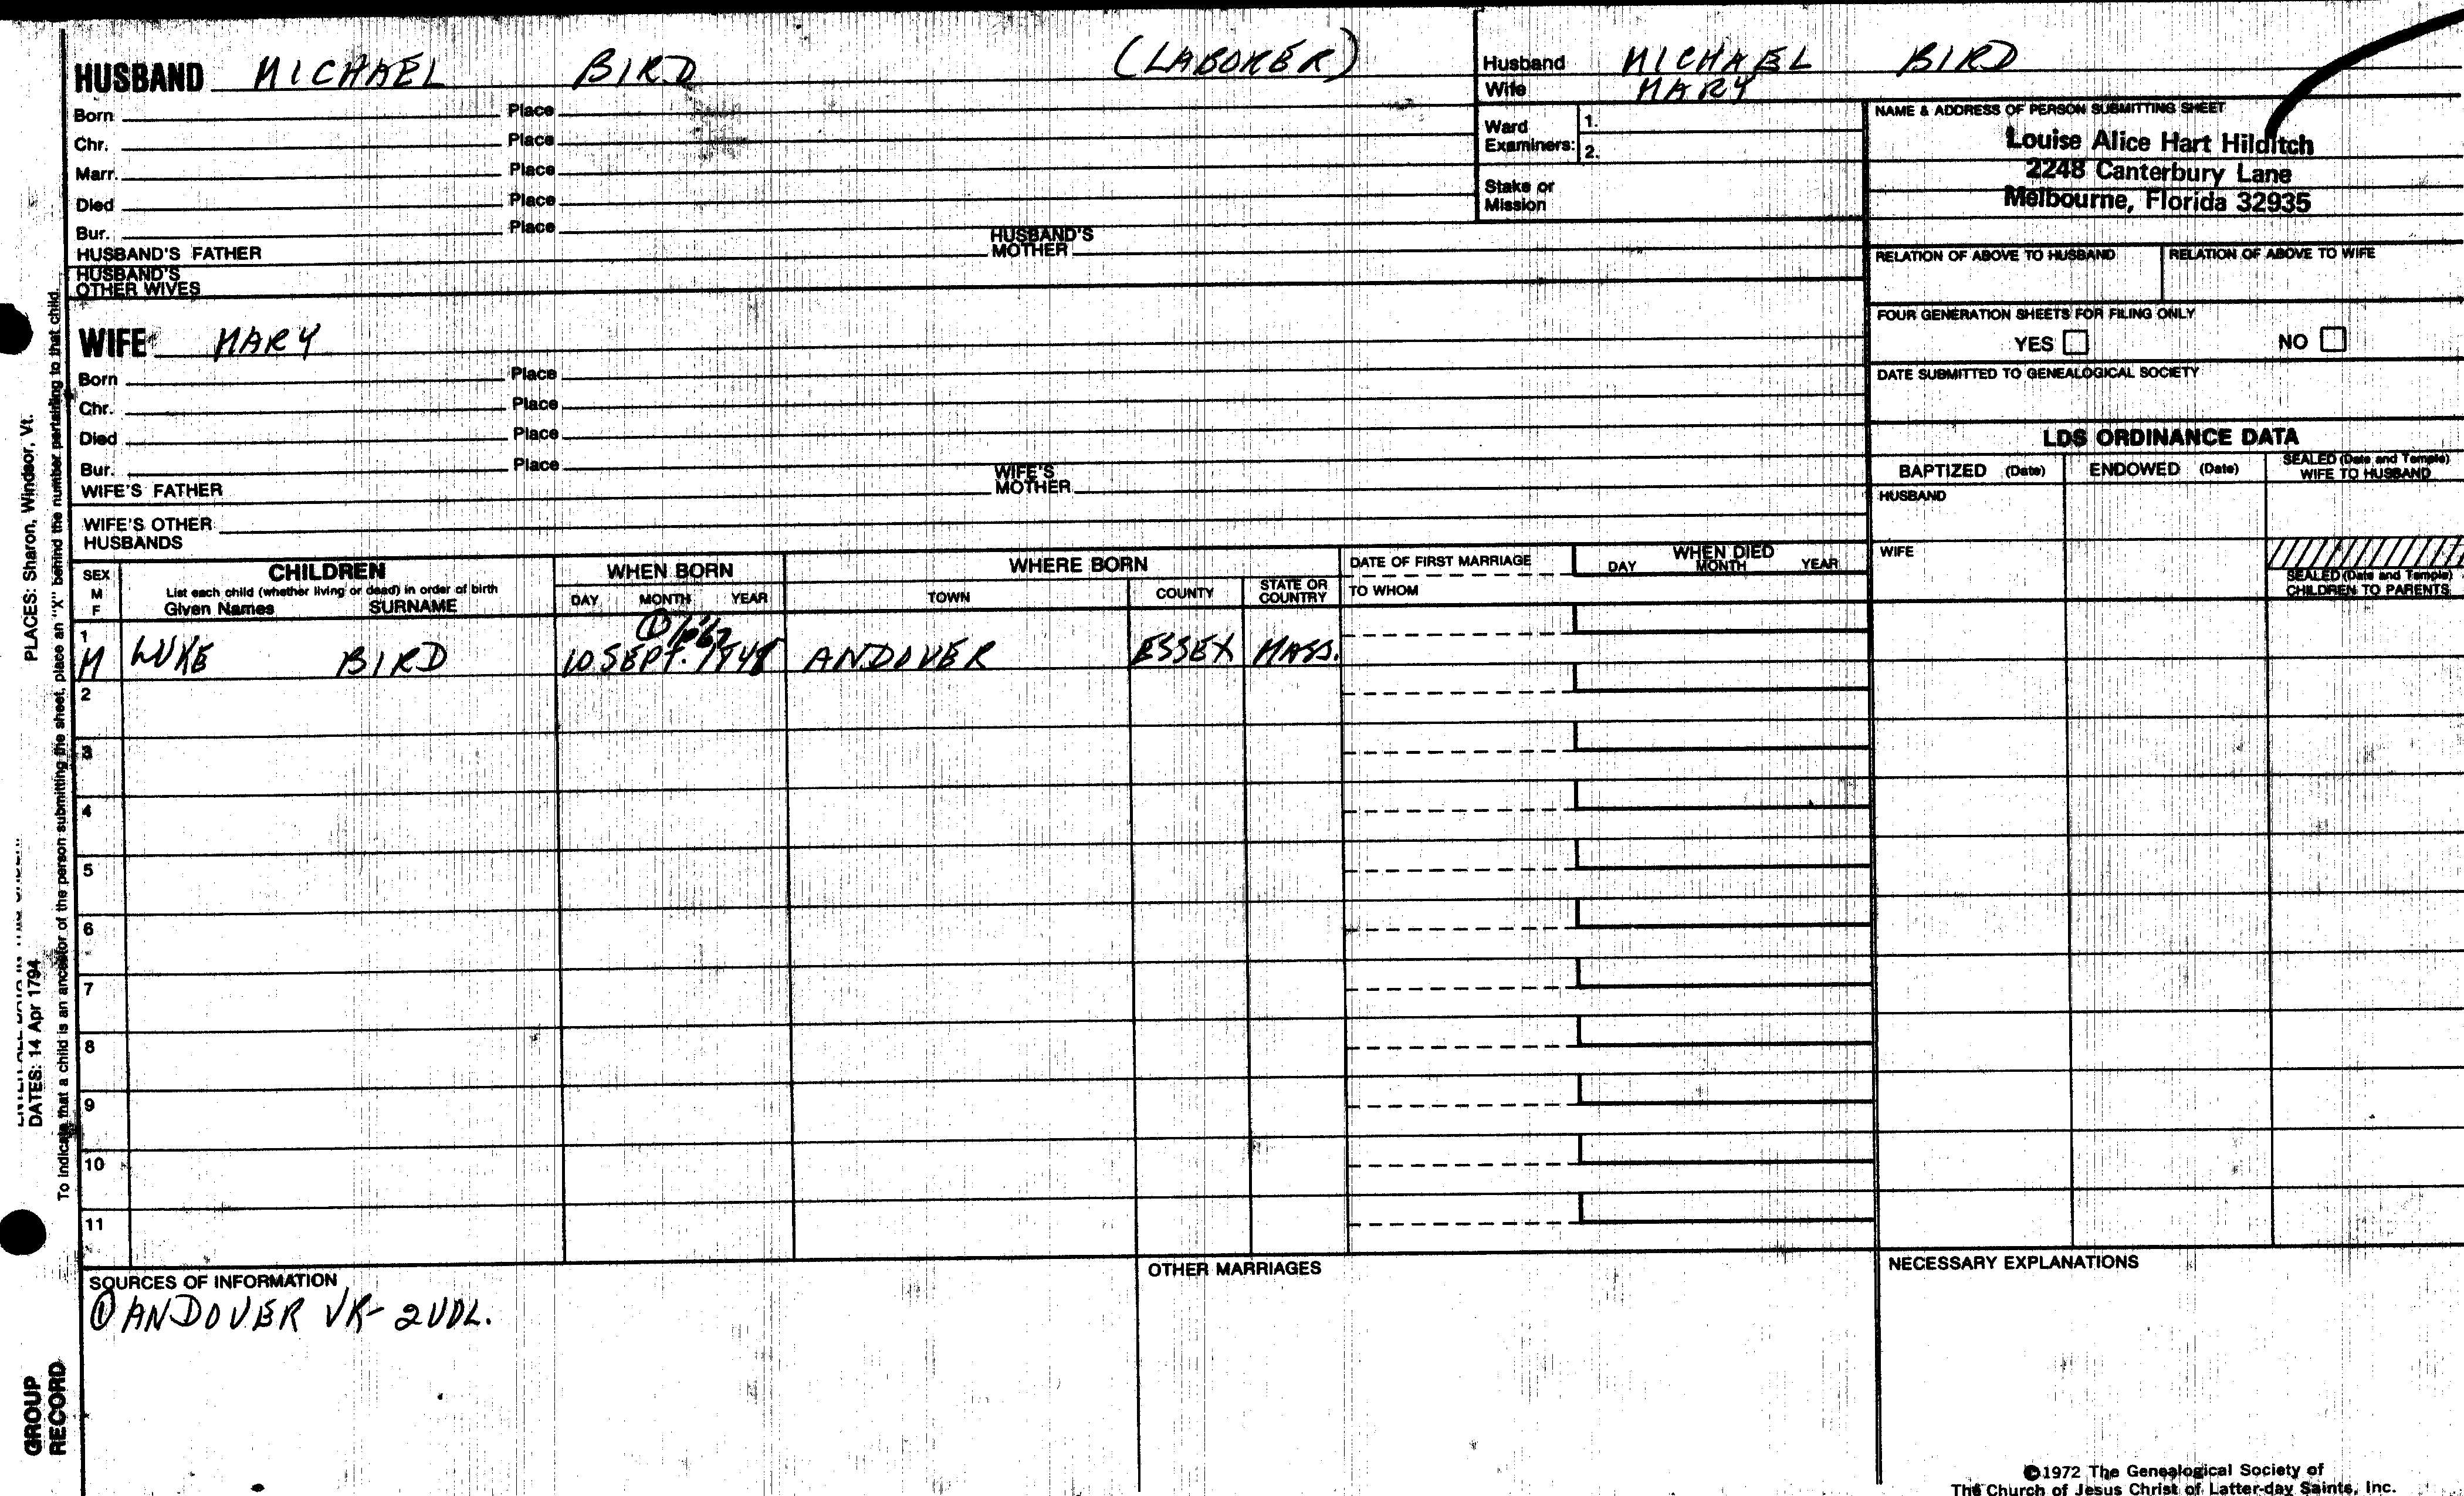 HUSBAND MICHAEL BIRD (LABORER)
Born Place
Chr. Place
Marr. Place
Died Place
Bur. Place
HUSBAND'S FATHER HUSBAND'S MOTHER
HUSBAND'S OTHER WIVES
WIFE MARY
Born Place
Chr. Place
Died Place
Bur. Place
WIFE'S FATHER WIFE'S MOTHER
WIFE'S OTHER HUSBANDS
Husband MICHAEL BIRD
Wife MARY
Ward Examiners: 1.
2.
Stake or Mission
NAME & ADDRESS OF PERSON SUBMITTING SHEET
Louise Alice Hart Hilditch
2248 Canterbury Lane
Melbourne, Florida 32935
RELATION OF ABOVE TO HUSBAND RELATION OF ABOVE TO WIFE
FOUR GENERATION SHEETS FOR FILING ONLY
YES NO
DATE SUBMITTED TO GENEALOGICAL SOCIETY
LDS ORDINANCE DATA
BAPTIZED (Date) ENDOWED (Date) SEALED (Date and Temple) WIFE TO HUSBAND
HUSBAND
WIFE
SEALED (Date and Temple) CHILDREN TO PARENTS
SEX M F
CHILDREN
List each child (whether living or dead) in order of birth
Given Names SURNAME
WHEN BORN
DAY MONTH YEAR
WHERE BORN
TOWN COUNTY STATE OR COUNTRY
DATE OF FIRST MARRIAGE
TO WHOM
WHEN DIED
DAY MONTH YEAR
1
M LUKE BIRD 10 SEPT. 1848 ANDOVER ESSEX MASS.
2
3
4
5
6
7
8
9
10
11
SOURCES OF INFORMATION
① ANDOVER VR- 2VOL.
OTHER MARRIAGES
NECESSARY EXPLANATIONS
©1972 The Genealogical Society of
The Church of Jesus Christ of Latter-day Saints, Inc.
PLACES: Sharon, Windsor, Vt.
DATES: 14 Apr 1794
To indicate that a child is an ancestor of the person submitting the sheet, place an "X" behind the number pertaining to that child.
GROUP
RECORD